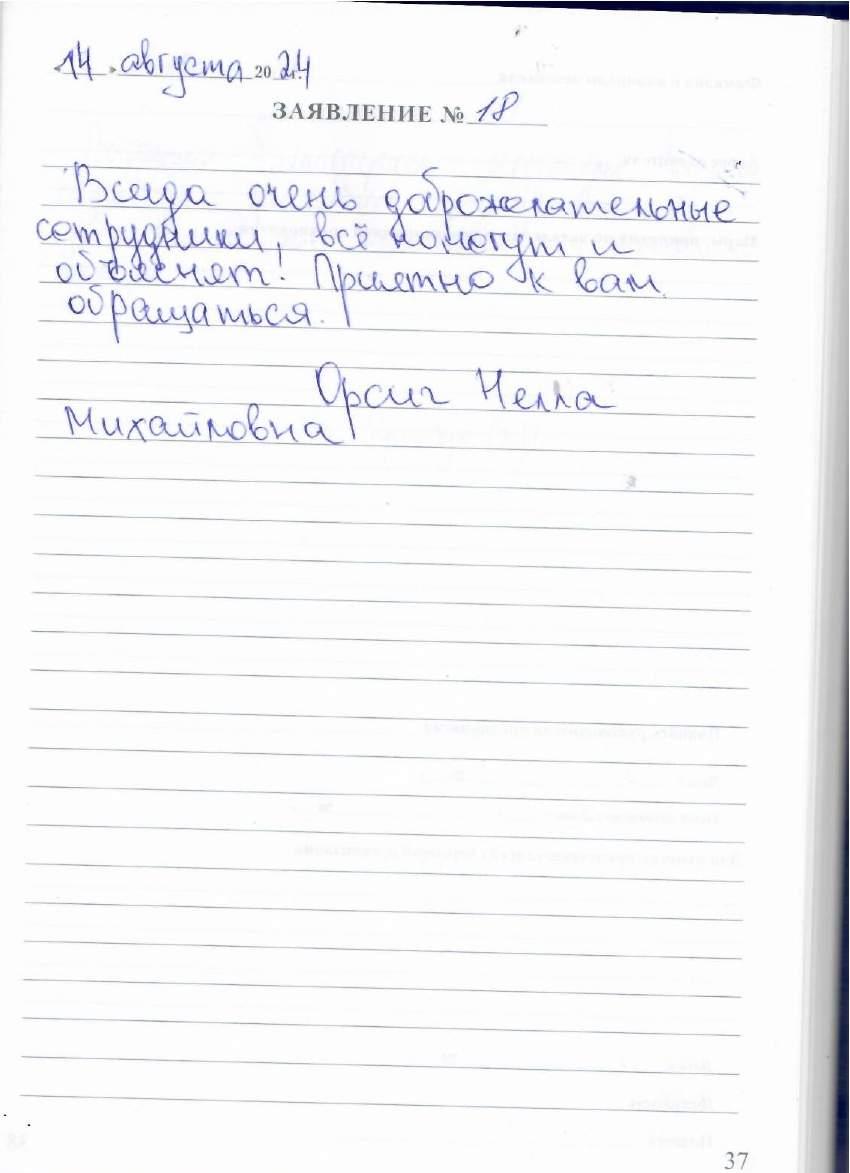 14 августа 2024 г.
ЗАЯВЛЕНИЕ № 18
Всегда очень доброжелательные
сотрудники, всё помогут и
объяснят! Приятно к вам
обращаться.
Орсич Нелла
Михайловна
37